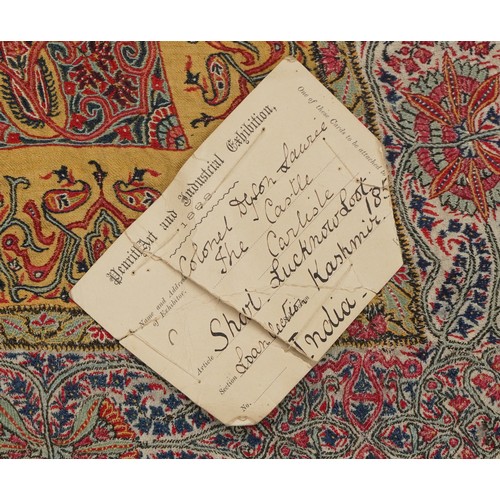 One of these Cards to be attached
Penrith Art and Industrial Exhibition,
1899
Name and Address of Exhibitor.
Colonel Dyson Laurie
The Castle
Carlisle
Article Shawl Lucknow Loot 185
Section Loan Section Kashmir
India
No.